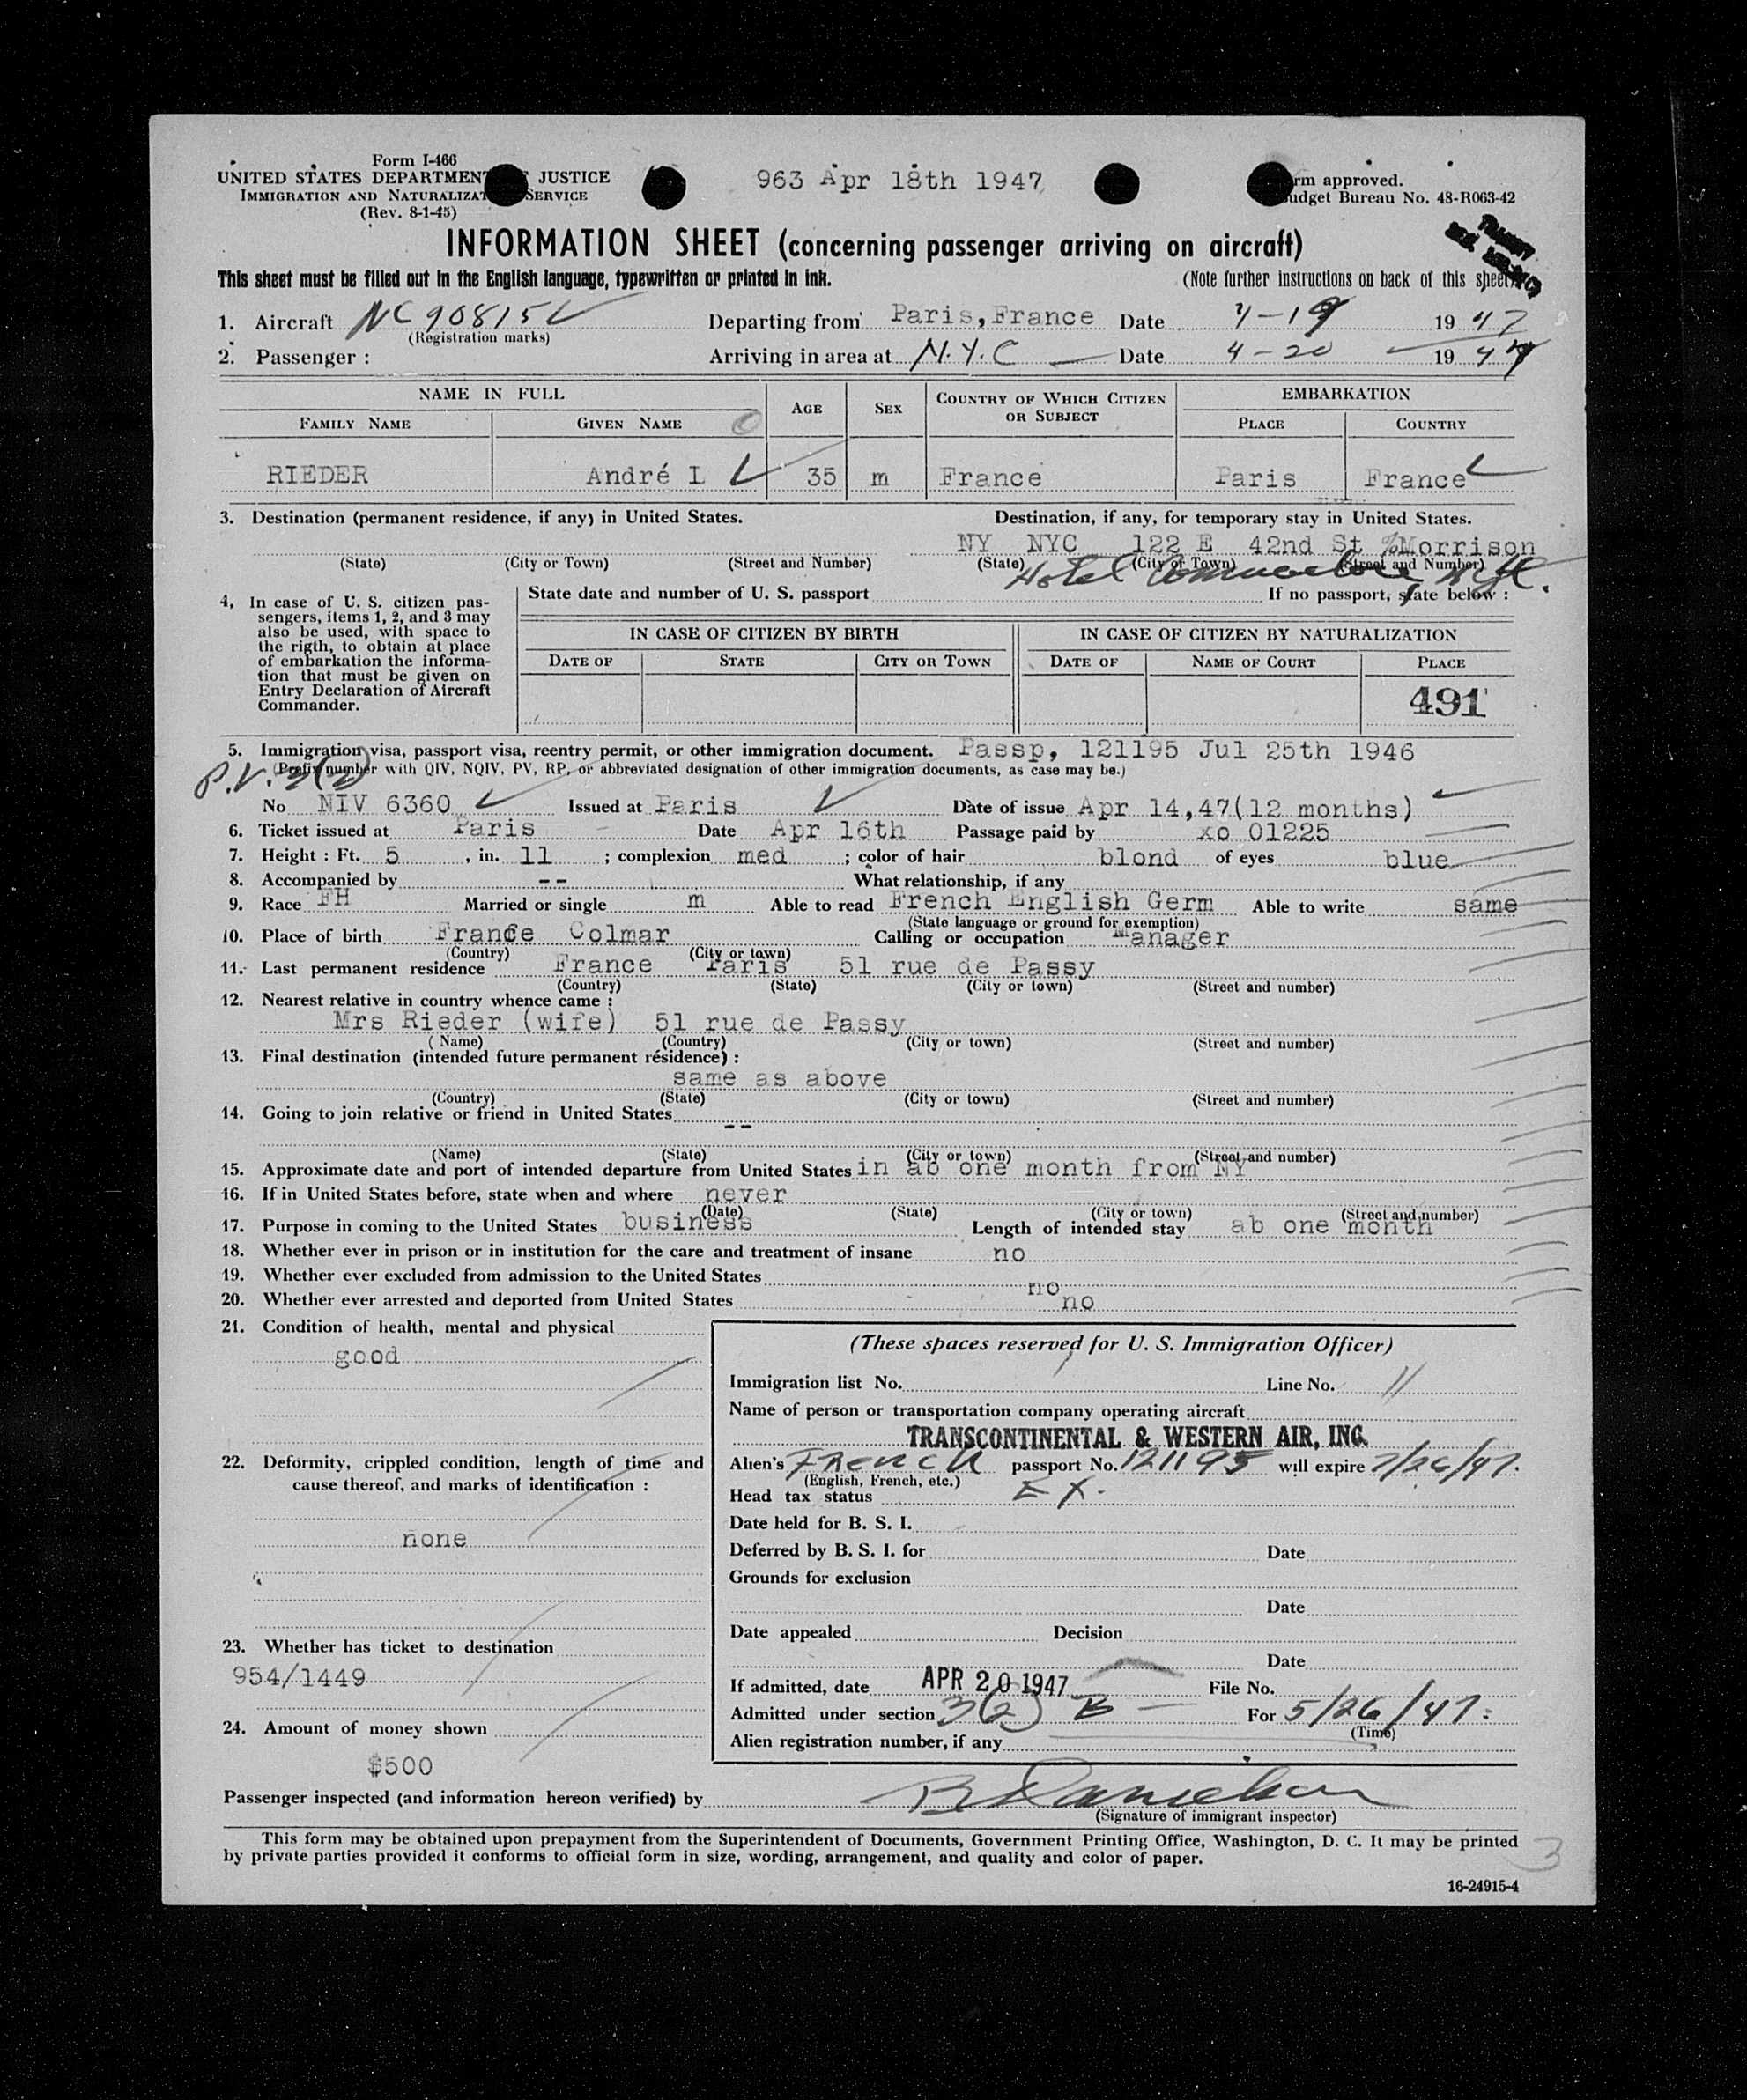 Form I-466
UNITED STATES DEPARTMENT JUSTICE
IMMIGRATION AND NATURALIZAT SERVICE
(Rev. 8-1-45)
963 Apr 18th 1947
rm approved.
udget Bureau No. 48-R063-42
INFORMATION SHEET (concerning passenger arriving on aircraft)
This sheet must be filled out in the English language, typewritten or printed in ink. (Note further instructions on back of this sheet)
1. Aircraft NC90815 Departing from Paris, France Date 4-19 1947
(Registration marks)
2. Passenger : Arriving in area at N.Y.C Date 4-20 1947
NAME IN FULL AGE SEX COUNTRY OF WHICH CITIZEN OR SUBJECT EMBARKATION
FAMILY NAME GIVEN NAME PLACE COUNTRY
RIEDER André L 35 m France Paris France
3. Destination (permanent residence, if any) in United States. Destination, if any, for temporary stay in United States.
NY NYC 122 E 42nd St %Morrison
(State) (City or Town) (Street and Number) (State) (City or Town) (Street and Number)
Hotel Commodore, NYC.
4, In case of U. S. citizen passengers, items 1, 2, and 3 may also be used, with space to the rigth, to obtain at place of embarkation the information that must be given on Entry Declaration of Aircraft Commander.
State date and number of U. S. passport If no passport, state below :
IN CASE OF CITIZEN BY BIRTH IN CASE OF CITIZEN BY NATURALIZATION
DATE OF STATE CITY OR TOWN DATE OF NAME OF COURT PLACE
491
5. Immigration visa, passport visa, reentry permit, or other immigration document. Passp, 121195 Jul 25th 1946
(Prefix number with QIV, NQIV, PV, RP, or abbreviated designation of other immigration documents, as case may be.)
P.V. 3(2)
No NIV 6360 Issued at Paris Date of issue Apr 14,47(12 months)
6. Ticket issued at Paris Date Apr 16th Passage paid by xo 01225
7. Height : Ft. 5 , in. 11 ; complexion med ; color of hair blond of eyes blue
8. Accompanied by -- What relationship, if any
9. Race FH Married or single m Able to read French English Germ Able to write same
(State language or ground for exemption)
10. Place of birth France Colmar Calling or occupation Manager
(Country) (City or town)
11. Last permanent residence France Paris 51 rue de Passy
(Country) (State) (City or town) (Street and number)
12. Nearest relative in country whence came :
Mrs Rieder (wife) 51 rue de Passy
(Name) (Country) (City or town) (Street and number)
13. Final destination (intended future permanent résidence) :
same as above
(Country) (State) (City or town) (Street and number)
14. Going to join relative or friend in United States
--
(Name) (State) (City or town) (Street and number)
15. Approximate date and port of intended departure from United States in ab one month from NY
16. If in United States before, state when and where never
(Date) (State) (City or town) (Street and number)
17. Purpose in coming to the United States business Length of intended stay ab one month
18. Whether ever in prison or in institution for the care and treatment of insane no
19. Whether ever excluded from admission to the United States no
20. Whether ever arrested and deported from United States no
21. Condition of health, mental and physical
good
22. Deformity, crippled condition, length of time and cause thereof, and marks of identification :
none
23. Whether has ticket to destination
954/1449
24. Amount of money shown
$500
(These spaces reserved for U. S. Immigration Officer)
Immigration list No. Line No. 11
Name of person or transportation company operating aircraft
TRANSCONTINENTAL & WESTERN AIR, INC.
Alien's French passport No. 121195 will expire 7/26/47.
(English, French, etc.)
Head tax status EX.
Date held for B. S. I.
Deferred by B. S. I. for Date
Grounds for exclusion
Date
Date appealed Decision
Date
If admitted, date APR 20 1947 File No.
Admitted under section 3(2) B For 5/26/47.
(Time)
Alien registration number, if any
Passenger inspected (and information hereon verified) by
(Signature of immigrant inspector)
This form may be obtained upon prepayment from the Superintendent of Documents, Government Printing Office, Washington, D. C. It may be printed
by private parties provided it conforms to official form in size, wording, arrangement, and quality and color of paper.
3
16-24915-4